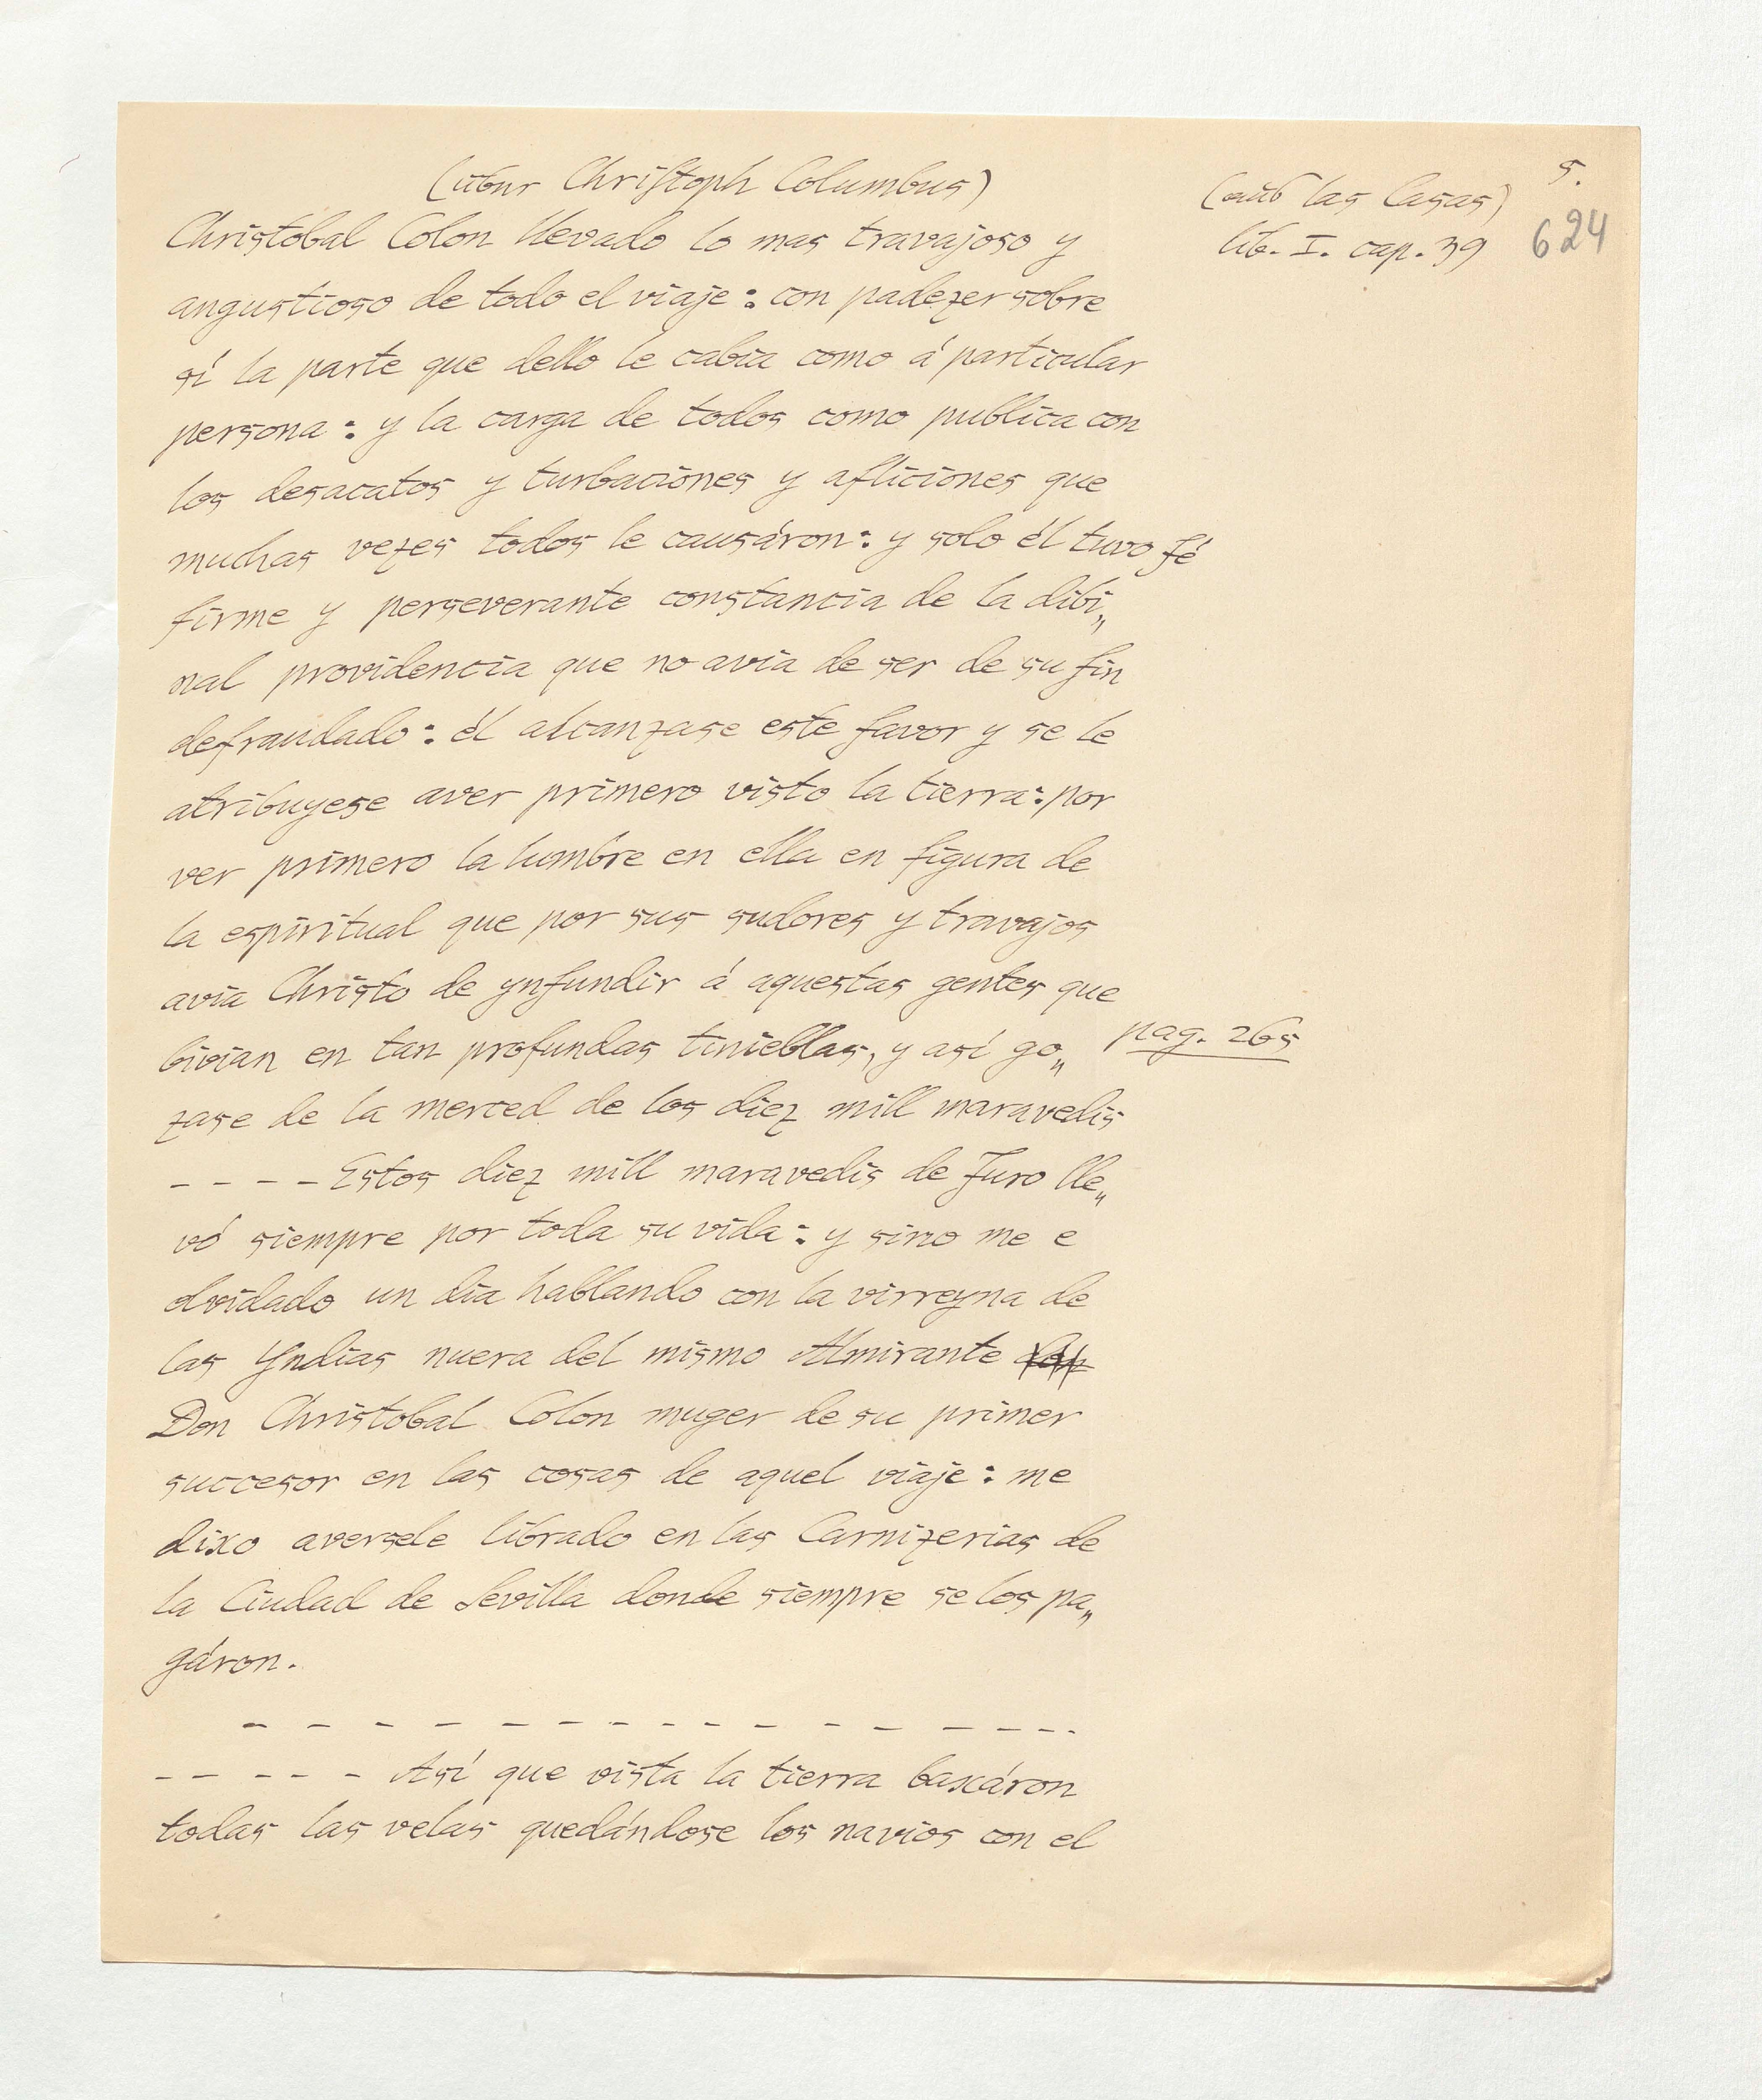 5.
(über Christoph Columbus)
(aus las Casas)
lib. I. cap. 39
624
Christobal Colon llevado lo mas travajoso y
angustioso de todo el viaje: con padezer sobre
sí la parte que dello le cabia como á particular
persona: y la carga de todos como publica con
los desacatos y turbaciones y afliciones que
muchas vezes todos le causáron: y solo él tuvo fé
firme y perseverante constancia de la dibi„
nal providencia que no avia de ser de su fin
defraudado: él alcanzase este favor y se le
atribuyese aver primero visto la tierra: por
ver primero la lumbre en ella en figura de
la espiritual que por sus sudores y travajos
avia Christo de ynfundir á aquestas gentes que
bivian en tan profundas tinieblas, y así go„
pag. 265
zase de la merced de los diez mill maravedis
– – – – Estos diez mill maravedis de Juro lle„
vó siempre por toda su vida: y sino me e
olvidado un dia hablando con la virreyna de
las Yndias nuera del mismo Almirante
Don Christobal Colon muger de su primer
succesor en las cosas de aquel viaje: me
dixo aversele librado en las Carnizerias de
la Ciudad de Sevilla donde siempre se los pa„
gáron.
– – – – – – – – – – – – – – – –
– – – – – Así que vista la tierra baxáron
todas las velas quedándose los navios con el